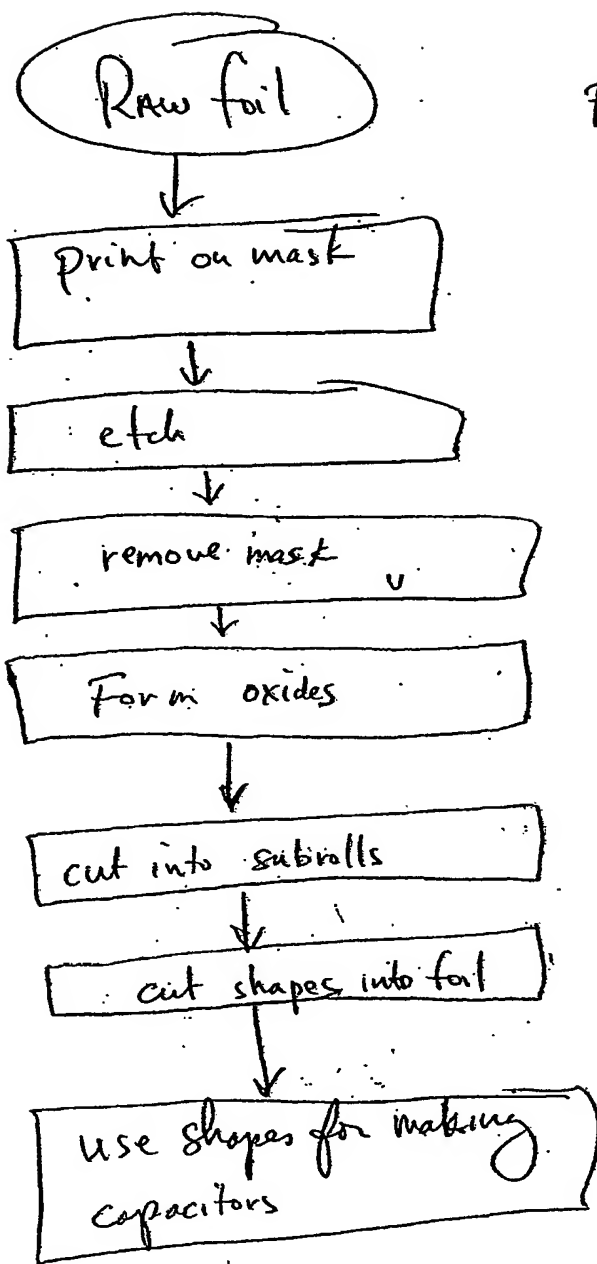 Raw foil
print on mask
etch
remove mask
Form oxides
cut into subrolls
cut shapes into foil
use shapes for making
capacitors